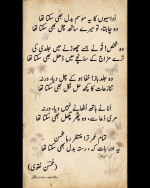 اداسیوں کا یہ موسم بدل بھی سکتا تھا
وہ چاہتا، تو میرے ساتھ چل بھی سکتا تھا
وہ شخص! تُو نے جسے چھوڑنے میں جلدی کی
ترے مزاج کے سانچے میں ڈھل بھی سکتا تھا
وہ جلد باز! خفا ہو کے چل دیا، ورنہ
تنازعات کا کچھ حل نکل بھی سکتا تھا
اَنا نے ہاتھ اٹھانے نہیں دیا، ورنہ
مری دُعا سے، وہ پتھر پگھل بھی سکتا تھا
تمام عُمر ترا منتظر رہا محسن
یہ اور بات کہ، رستہ بدل بھی سکتا تھا
(محسن نقوی)